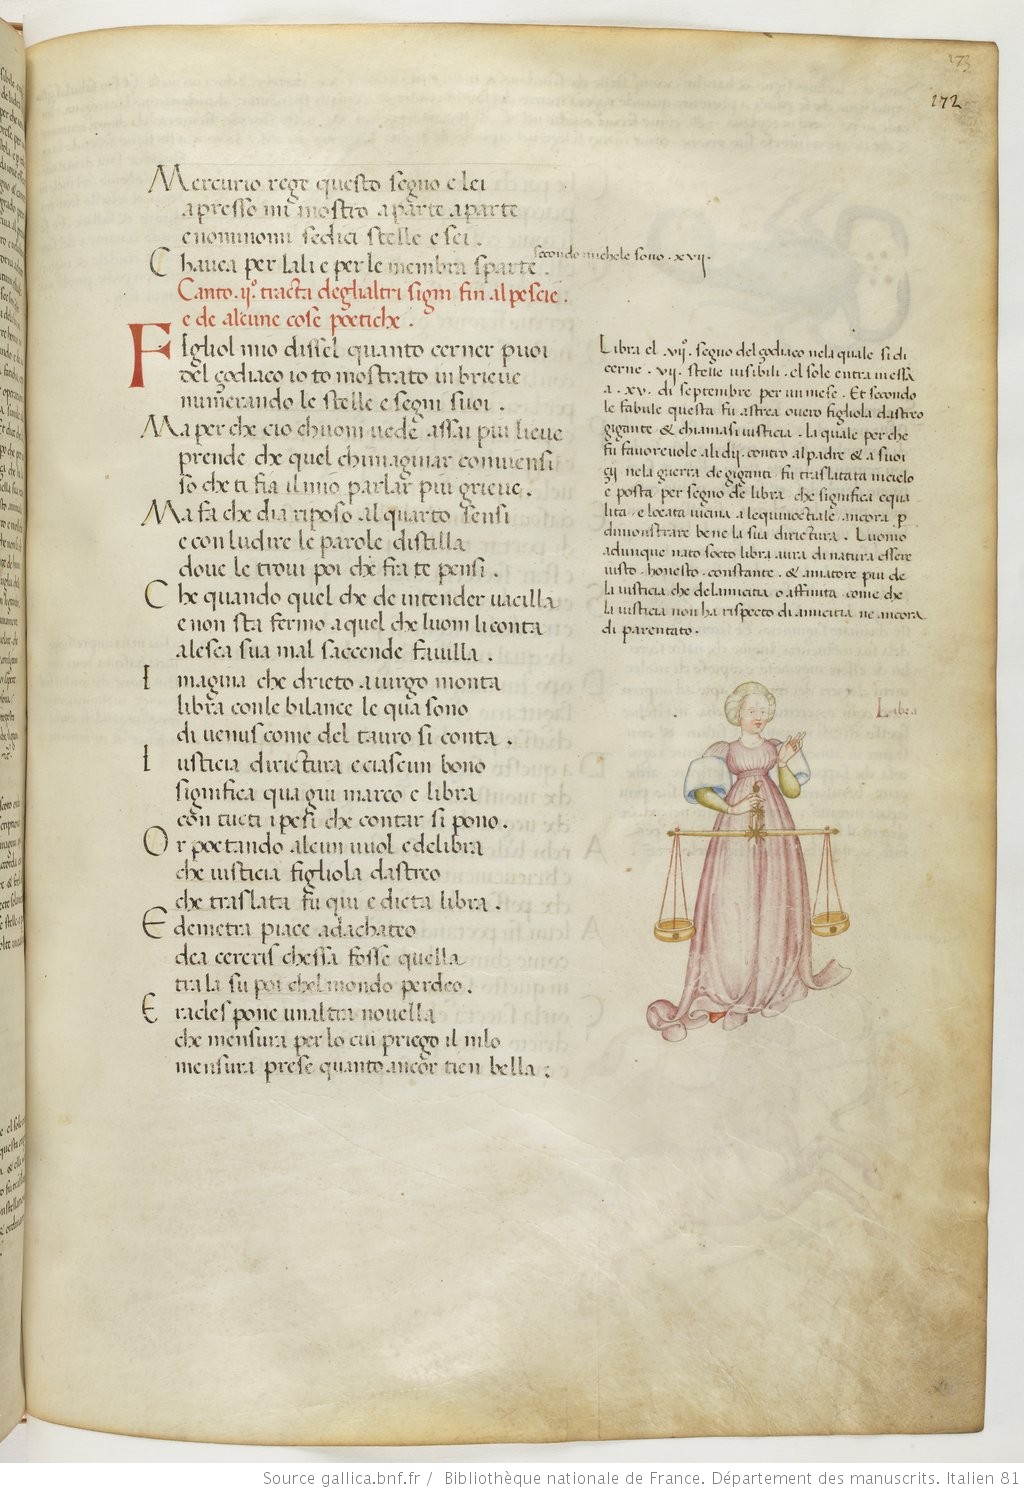 173
172
Mercurio rege questo segno e lei
apresso mi mostro aparte aparte
e nominomi sedici stelle e sei .
C havea per lali e per le membra sparte .
secondo michele sono . xvii .
Canto . ii° . tracta deglialtri signi fin al pescie .
e de alcune cose poetiche .
Figliol mio dissel quanto cerner puoi
del zodiaco io to mostrato in brieve
numerando le stelle e segni suoi .
Ma per che cio chuom vede assai piu lieve
prende che quel chimaginar conviensi
so che ti fia il mio parlar piu grieve .
Ma fa che dia riposo al quarto sensi
e con ludire le parole distilla
dove le trovi poi che fra te pensi .
C he quando quel che de intender vacilla
e non sta fermo a quel che luom li conta
alesca sua mal saccende favilla .
I magina che drieto a virgo monta
libra con le bilance le qua sono
di venus come del tauro si conta .
I usticia dirictura e ciascun bono
significa qua giu marco e libra
con tucti i pesi che contar si pono .
O r poetando alcun vuol e delibra
che iusticia figliola dastreo
che traslata fu qui e dicta libra .
E demetra piace adachateo
dea cereris chessa fosse quella
tra la su poi chel mondo perdeo .
E racles pone unaltra novella
che mensura per lo cui priego il nilo
mensura prese quanto ancor tien bella .
Libra e l . vii° . segno del zodiaco nela quale si di
cerne . vii . stelle visibili . el sole entra in essa
a . xv . di septembre per un mese . Et secondo
le fabule questa fu astrea overo figliola dastreo
gigante & chiamasi iusticia . la quale per che
fu favorevole ali dii . contro al padre & a suoi
nela guerra de giganti . fu traslatata in cielo
e posta per segno de libra . che significa equa
lita . e locata vicina a lequinoctiale . ancora p
dimonstrare bene la sua dirictura . Luomo
adunque nato socto libra avra di natura essere
iusto . honesto . constante . & amatore piu de
la iusticia che delamicitia o affinita . come che
la iusticia non ha rispecto di amicitia ne ancora
di parentato .
Libra
Source gallica.bnf.fr / Bibliothèque nationale de France. Département des manuscrits. Italien 81